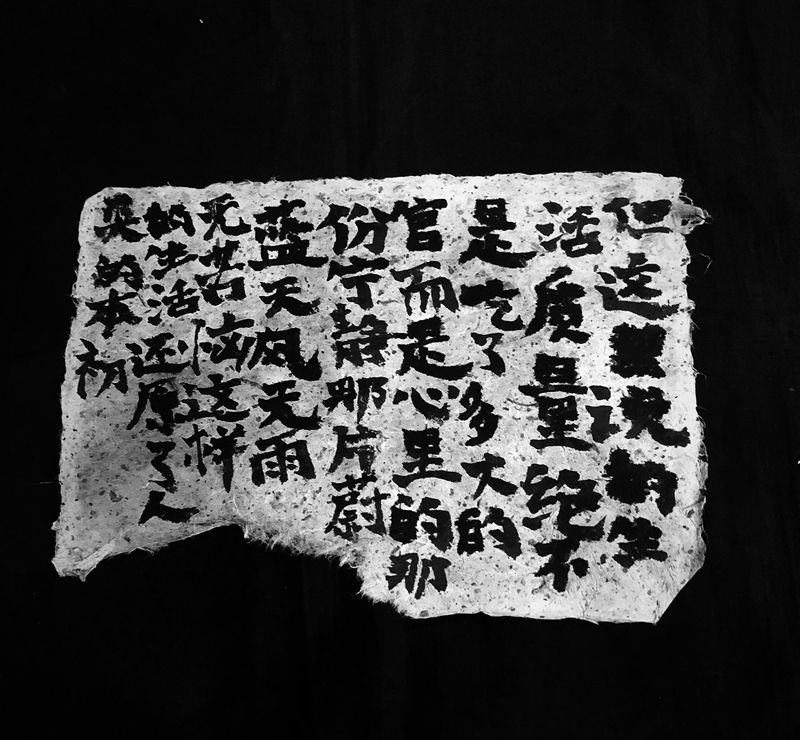 但这说的生
活质量绝不
是吃了多大的
官而是心里的那
份宁静那片蔚
蓝天风无雨
无苦恼这样
的生活还原了人
类的本初